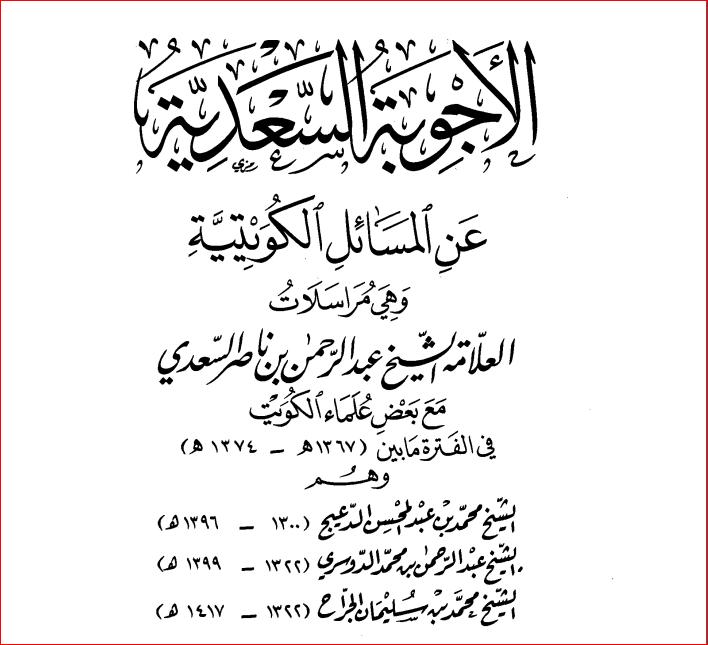 الأَجْوِبَةُ السَّعْدِيَّةُ
عَنِ المَسَائِلِ الكُوَيْتِيَّةِ
وَهِيَ مُرَاسَلَاتُ
العلّامة الشّيخ عبد الرّحمٰن بن ناصر السّعدي
مَعَ بَعْضِ عُلَمَاءِ الكُوَيْتِ
في الفَترة مَابين (١٣٦٧هـ – ١٣٧٤هـ)
وهُم
الشّيخ محمّد بْن عبْد المحْسِن الدّعيج (١٣٠٠ – ١٣٩٦هـ)
الشّيخ عبْد الرّحمٰن بن محمّد الدّوسري (١٣٢٢ – ١٣٩٩هـ)
الشّيخ محمَّد بْن سُليْمَان الجرّاح (١٣٢٢ – ١٤١٧هـ)